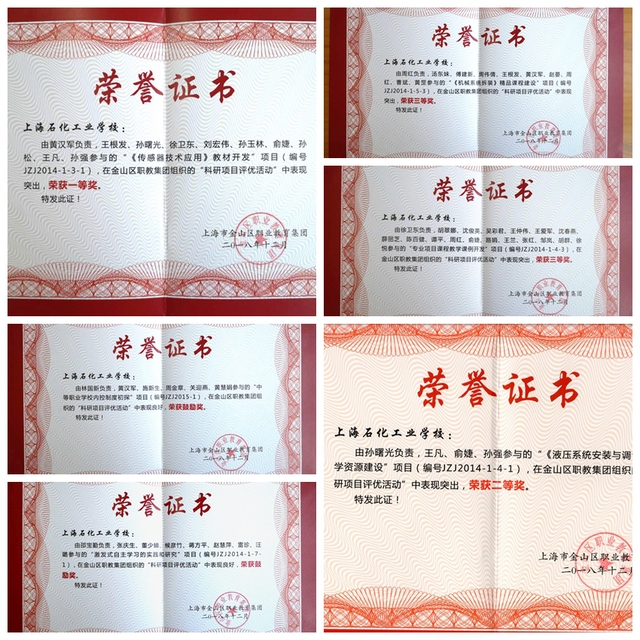 荣誉证书
上海石化工业学校：
由黄汉军负责，王根发、孙曙光、徐卫东、刘宏伟、孙玉林、俞婕、孙
松、王凡、孙强参与的“《传感器技术应用》教材开发”项目（编号
JZJ2014-1-3-1），在金山区职教集团组织的“科研项目评优活动”中表现
突出，荣获一等奖。
特发此证！
上海市金山区职业教育集团
二〇一八年十二月
荣誉证书
上海石化工业学校：
由周红负责，汤东妹、傅捷新、周伟倩、王根发、黄汉军、赵晏、周
红、曹斌、黄罡参与的“《机械系统拆装》精品课程建设”项目（编号
JZJ2014-1-5-3），在金山区职教集团组织的“科研项目评优活动”中表现
突出，荣获三等奖。
特发此证！
上海市金山区职业教育集团
二〇一八年十二月
荣誉证书
上海石化工业学校：
由徐卫东负责，胡翠娜、沈俊英、吴彩君、王仲伟、王爱军、沈春燕、
薛丽芝、陈百健、谭平、周红、俞婕、路娟、王兰、张红、邹岚、胡群、徐
悦参与的“专业项目课程教学课例开发”项目（编号JZJ2014-4-3），在
金山区职教集团组织的“科研项目评优活动”中表现突出，荣获三等奖。
特发此证！
上海市金山区职业教育集团
二〇一八年十二月
荣誉证书
上海石化工业学校：
由林国新负责，黄汉军、施新生、周金章、关迎燕、黄慧娟参与的“中
等职业学校内控制度初探”项目（编号JZJ2015-1），在金山区职教集团组
织的“科研项目评优活动”中表现良好，荣获鼓励奖。
特发此证！
上海市金山区职业教育集团
二〇一八年十二月
荣誉证书
上海石化工业学校：
由孙曙光负责，王凡、俞婕、孙强参与的“《液压系统安装与调
学资源建设”项目（编号JZJ2014-1-4-1），在金山区职教集团组织
研项目评优活动”中表现突出，荣获二等奖。
特发此证！
上海市金山区职业教育集
二〇一八年十二月
荣誉证书
上海石化工业学校：
由邵宝勤负责，张庆生、董少焯、候彦竹、蒋方平、赵慧萍、雷珍、汪
璐参与的“激发式自主学习的实践和研究”项目（编号JZJ2014-1-7-
1），在金山区职教集团组织的“科研项目评优活动”中表现良好，荣获鼓
励奖。
特发此证！
上海市金山区职业教育集团
二〇一八年十二月